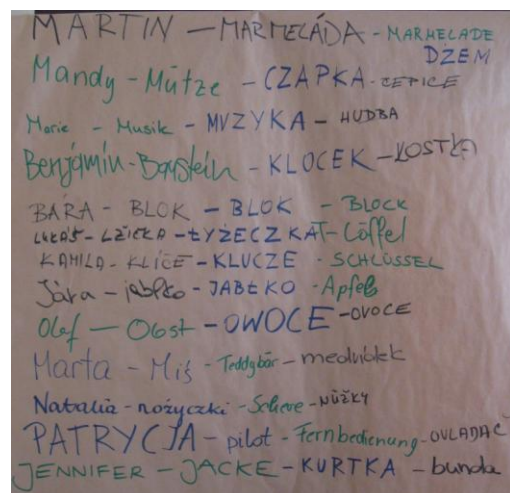 MARTIN - MARMELÁDA - MARMELADE
DŻEM
Mandy - Mütze - CZAPKA - ČEPICE
Marie - Musik - MUZYKA - HUDBA
Benjamin - Baustein - KLOCEK - KOSTKA
BÁRA - BLOK - BLOK - BLOCK
LUKÁŠ - LŽIČKA - ŁYŻECZKA T-Löffel
KAMILA - KLÍČE - KLUCZE - SCHLÜSSEL
Jára - jablko - JABŁKO - Apfel
Olaf - Obst - OWOCE - OVOCE
Marta - Miś - Teddybär - medvídek
Natalia - nożyczki - Schere - NŮŽKY
PATRYCJA - pilot - Fernbedienung - OVLADAČ
JENNIFER - JACKE - KURTKA - bunda